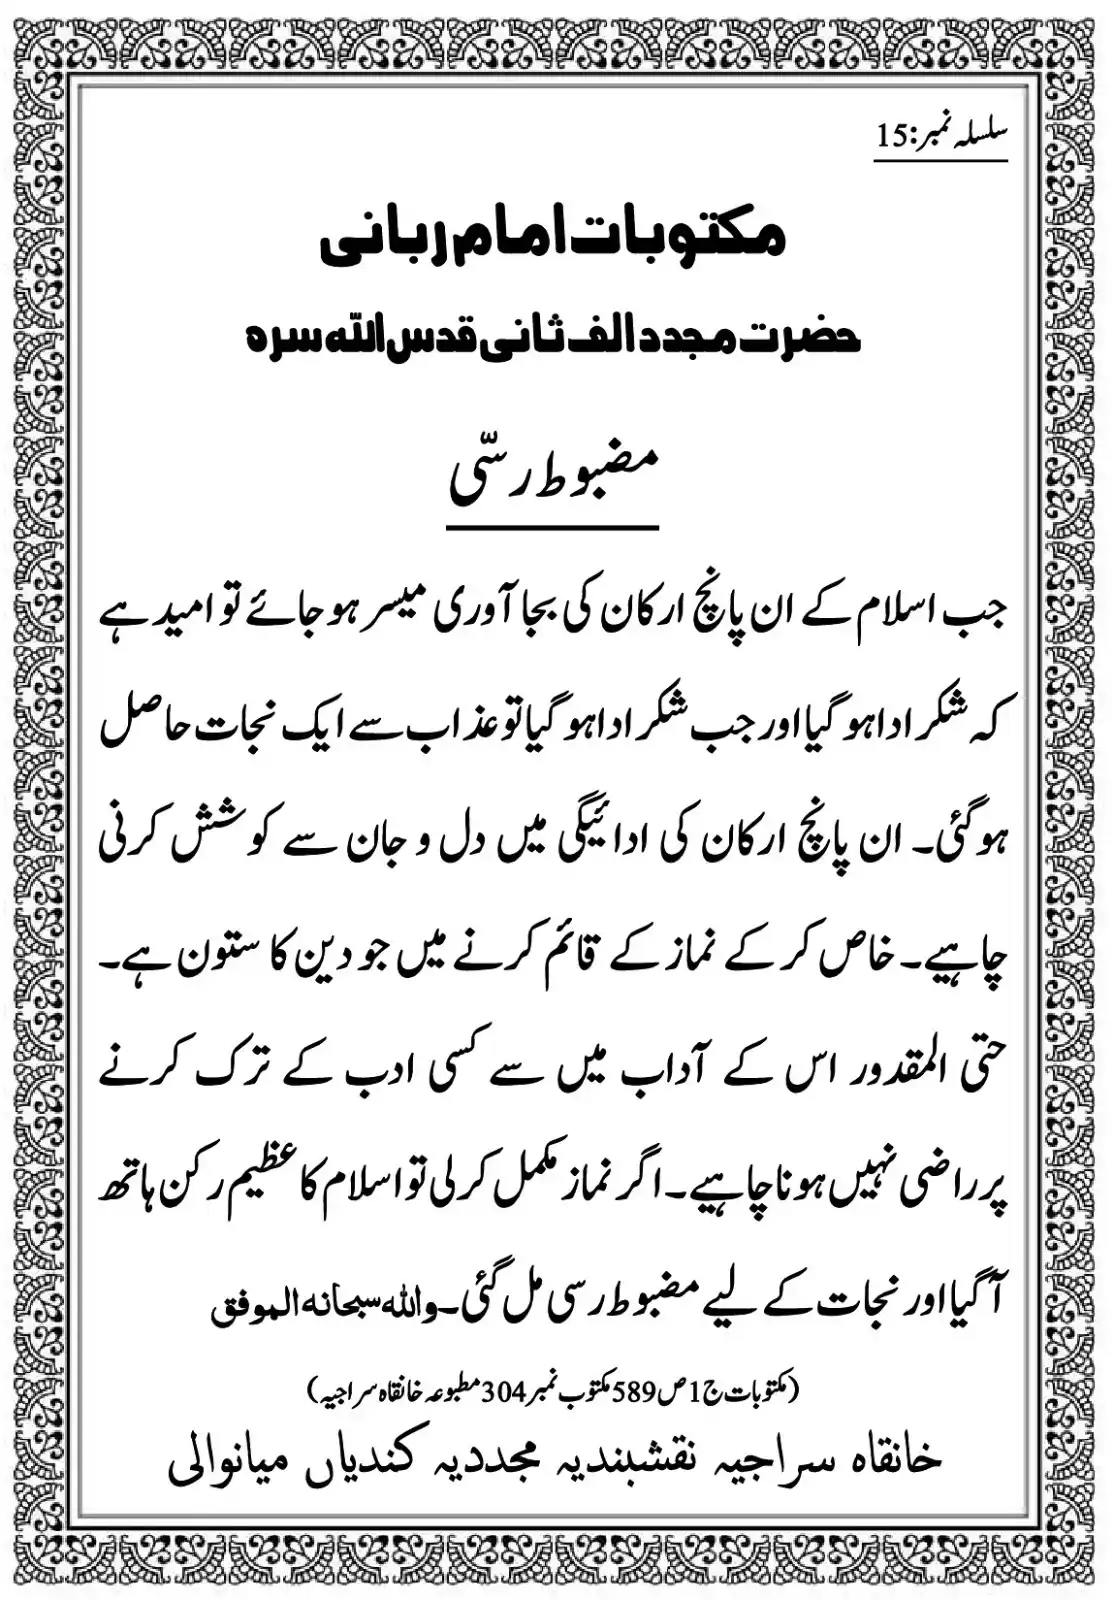 سلسلہ نمبر:15
مکتوبات امام ربانی
حضرت مجدد الف ثانی قدس اللہ سرہ
مضبوط رسّی
جب اسلام کے ان پانچ ارکان کی بجا آوری میسر ہو جائے تو امید ہے
کہ شکر ادا ہو گیا اور جب شکر ادا ہو گیا تو عذاب سے ایک نجات حاصل
ہوگئی۔ ان پانچ ارکان کی ادائیگی میں دل و جان سے کوشش کرنی
چاہیے۔ خاص کر کے نماز کے قائم کرنے میں جو دین کا ستون ہے۔
حتی المقدور اس کے آداب میں سے کسی ادب کے ترک کرنے
پر راضی نہیں ہونا چاہیے۔ اگر نماز مکمل کرلی تو اسلام کا عظیم رکن ہاتھ
آ گیا اور نجات کے لیے مضبوط رسی مل گئی۔ واللہ سبحانہ الموفق
(مکتوبات ج1 ص589 مکتوب نمبر304 مطبوعہ خانقاہ سراجیہ)
خانقاہ سراجیہ نقشبندیہ مجددیہ کندیاں میانوالی